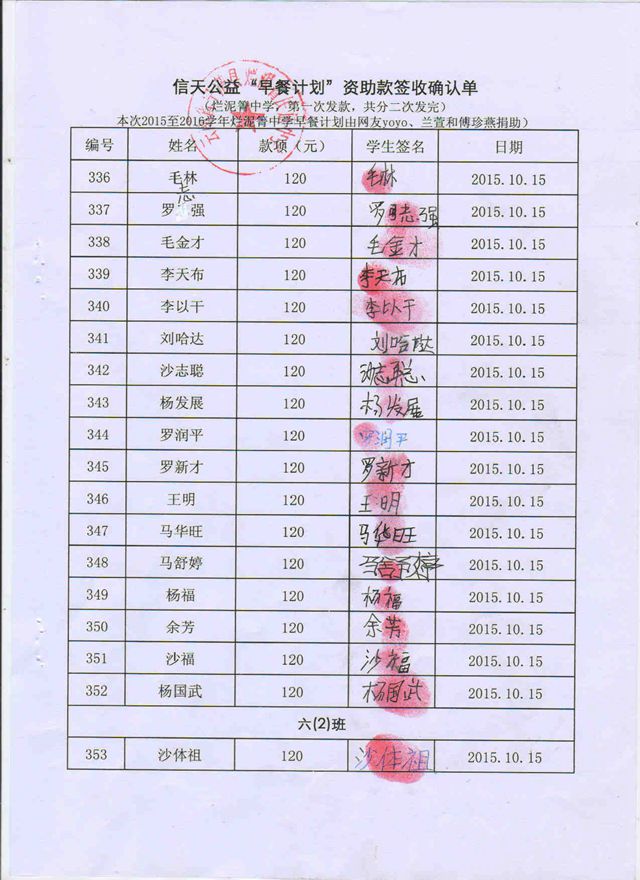 信天公益“早餐计划”资助款签收确认单
(烂泥箐中学，第一次发款，共分二次发完)
本次2015至2016学年烂泥箐中学早餐计划由网友yoyo、兰萱和傅珍燕捐助)
编号 姓名 款项（元） 学生签名 日期
336 毛林 120 毛林 2015.10.15
志
337 罗 强 120 罗志强 2015.10.15
338 毛金才 120 毛金才 2015.10.15
339 李天布 120 李天布 2015.10.15
340 李以干 120 李以干 2015.10.15
341 刘哈达 120 刘哈达 2015.10.15
342 沙志聪 120 沙志聪 2015.10.15
343 杨发展 120 杨发展 2015.10.15
344 罗润平 120 罗润平 2015.10.15
345 罗新才 120 罗新才 2015.10.15
346 王明 120 王明 2015.10.15
347 马华旺 120 马华旺 2015.10.15
348 马舒婷 120 马舒婷 2015.10.15
349 杨福 120 杨福 2015.10.15
350 余芳 120 余芳 2015.10.15
351 沙福 120 沙福 2015.10.15
352 杨国武 120 杨国武 2015.10.15
六(2)班
353 沙体祖 120 沙体祖 2015.10.15